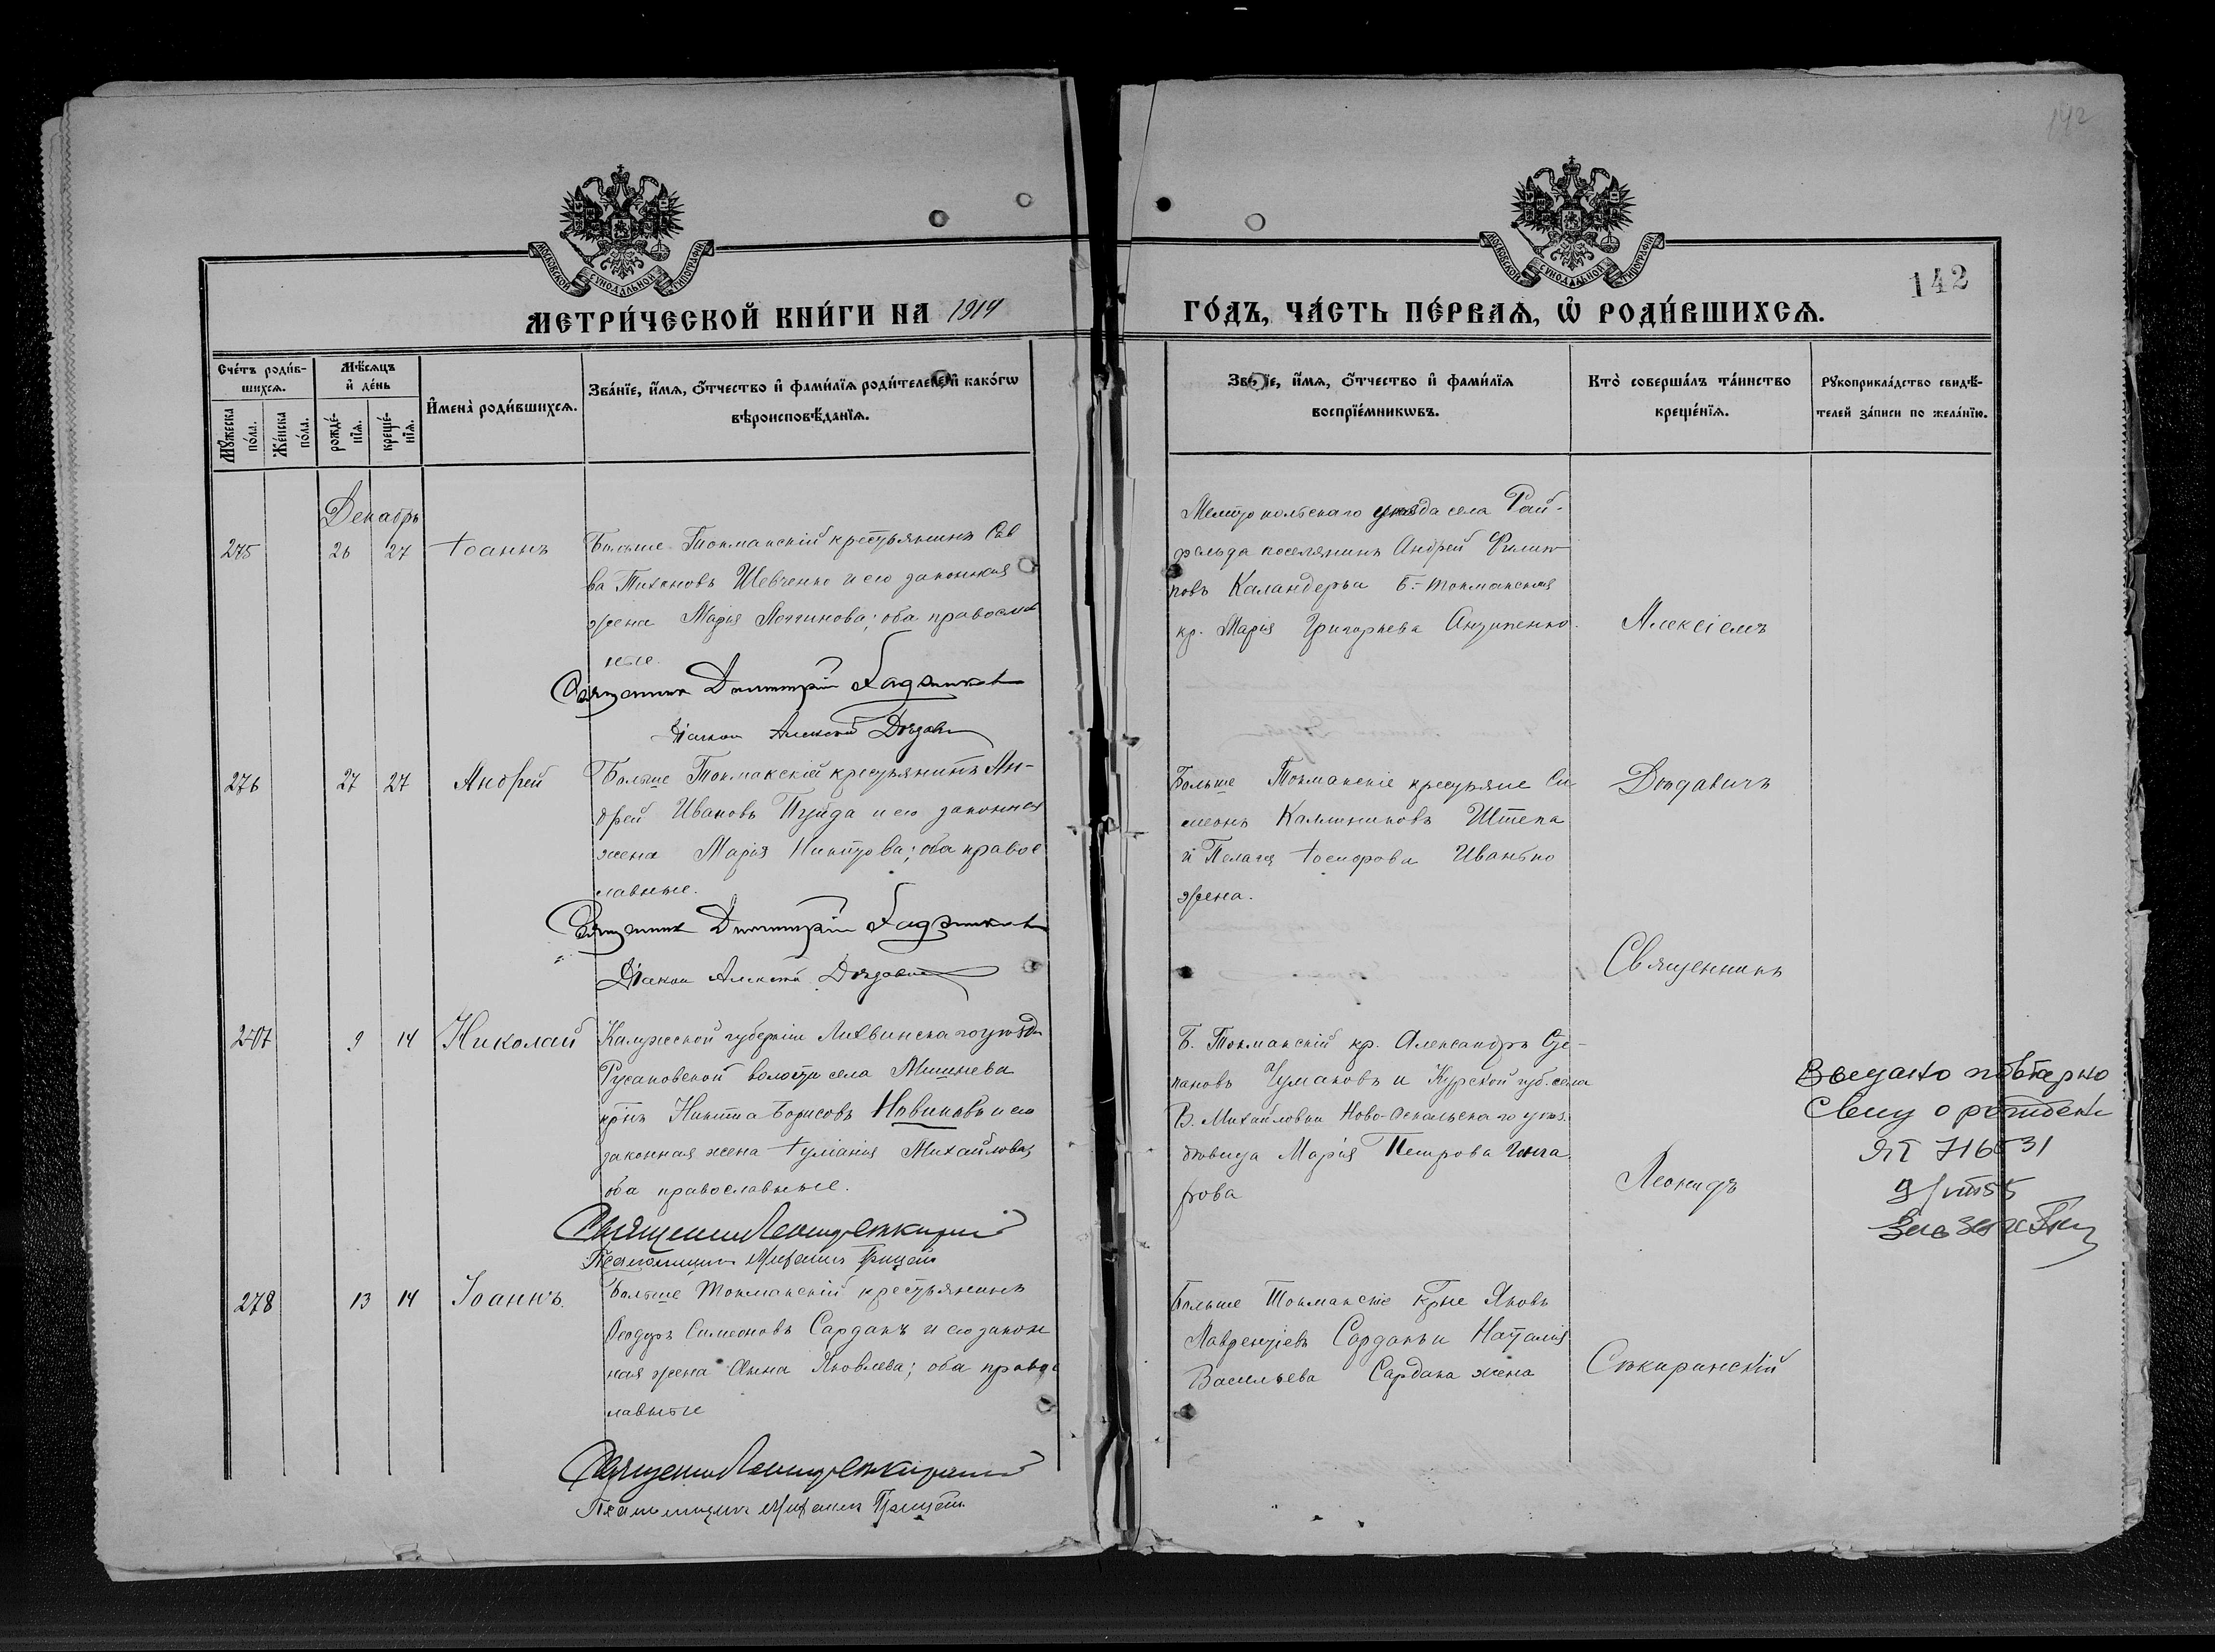 142
МОСКОВСКОЙ СУНОДАЛЬНОЙ ТИПОГРАФІИ
МОСКОВСКОЙ СУНОДАЛЬНОЙ ТИПОГРАФІИ
142
МЕТРИ́ЧЕСКОЙ КНИ́ГИ НА 1914
ГО́ДЪ, ЧА́СТЬ ПЕ́РВАѦ, Ѡ҆ РОДИ́ВШИХСѦ.
Сче́тъ роди́в-
шихсѧ.
Мꙋ́жеска по́ла.
Же́нска по́ла.
Мѣ́сѧцъ
и҆ де́нь
рожде́-
нїѧ.
креще́-
нїѧ.
И҆мена̀ роди́вшихсѧ.
Зва́нїе, и҆́мѧ, ѻ҆́тчество и҆ фами́лїѧ роди́телей и҆ како́гѡ
вѣроисповѣ́данїѧ.
Зва́нїе, и҆́мѧ, ѻ҆́тчество и҆ фами́лїѧ
воспрїе́мникѡвъ.
Кто̀ соверша́лъ та́инство
креще́нїѧ.
Рꙋкоприкла́дство свидѣ́-
телей за́писи по жела́нїю.
Декабрь
275 26 27 Іоаннъ
Больше-Токмакскій крестьянинъ Сав
ва Тихоновъ Шевченко и его законная
жена Марія Логгинова; оба правосла
ные.
Священникъ Димитрій
Діаконъ Алексѣй Доздавич
Мелитопольскаго уѣзда села Рай-
фельда поселянинъ Андрей Филип
повъ Каландеръ и Б.-Токмакская
кр. Марія Григорьева
Алексіемъ
276 27 27 Андрей
Больше Токмакскій крестьянинъ Ан-
дрей Ивановъ Пузйда и его законная
жена Марія Никитова; оба правос
лавные.
Священникъ Димитрій
Діаконъ Алексѣй
Больше Токмакскіе крестьяне Си
меонъ Калинниковъ Штепа
и Пелагія Іосифова Иванько
жена.
Священникъ
207 9 14 Николай
Калужской губерніи Лихвинскаго уѣзда
Русановской волости села Мишнева
кр‑нъ Никита Борисовъ Новиковъ и его
законная жена Іуліанія Михайлова;
оба православные.
Священникъ Леонидъ Сѣкиринскій
Псаломщикъ
Б. Токмакскій кр. Александръ Сте-
пановъ Чумаковъ и Курской губ. села
В. Михайловки Ново-Оскольскаго уѣз.
дѣвица Марія Петрова
рова
Леонидъ
Выдано повторно
Свид о рожден
ЯТ 716531
278 13 14 Іоаннъ.
Больше Токмакскій крестьянинъ
Ѳеодоръ Симеоновъ Сарданъ и его закон
ная жена Анна Яковлева; оба право
лавные
Священникъ Леонидъ Сѣкиринскій
Псаломщикъ
Больше Токмакскіе кр‑не Яковъ
Лаврентіевъ Сарданъ и Наталія
Васильева Сардана жена
Сѣкиринскій